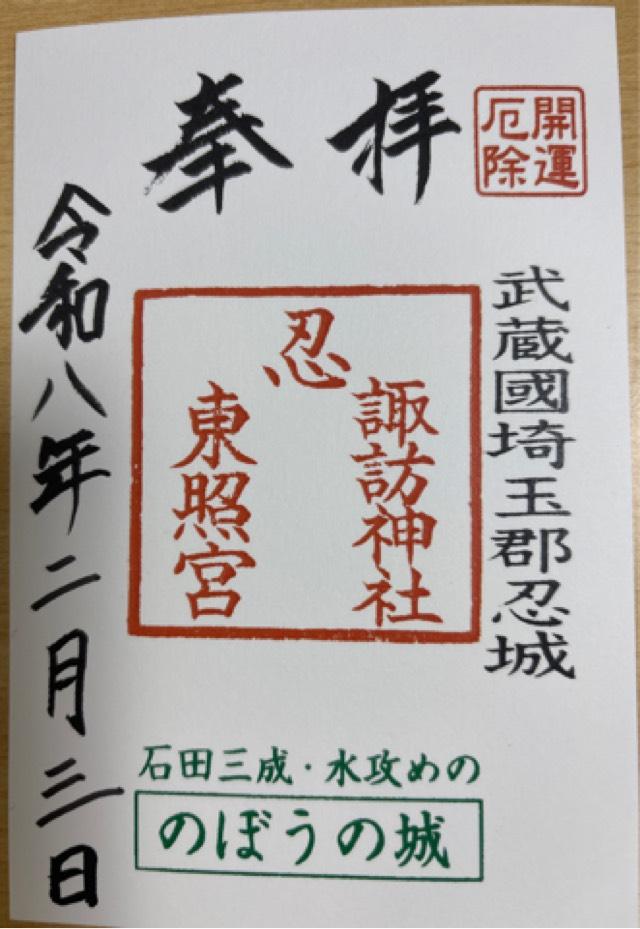 開運
厄除
奉拝
武蔵國埼玉郡忍城
忍
諏訪神社
東照宮
令和八年二月三日
石田三成・水攻めの
のぼうの城